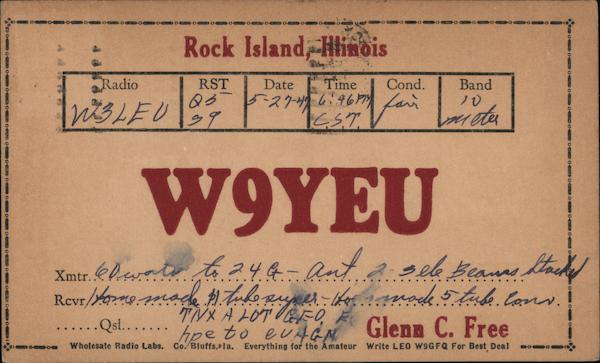 Rock Island, Illinois
Radio RST Date Time Cond. Band
W3LEU Q5 5-27-47 6:46PM fair 10
S9 C.S.T. meter
W9YEU
Xmtr. 60 watts to 24G - Ant 2-3ele Beams stacked
Rcvr Home made 11 tube super - Home made 5 tube conv.
Qsl. TNX A LOT GEO, &
hpe to CUAGN
Glenn C. Free
Wholesale Radio Labs. Co. Bluffs, Ia. Everything for the Amateur Write LEO W9GFQ For Best Deal